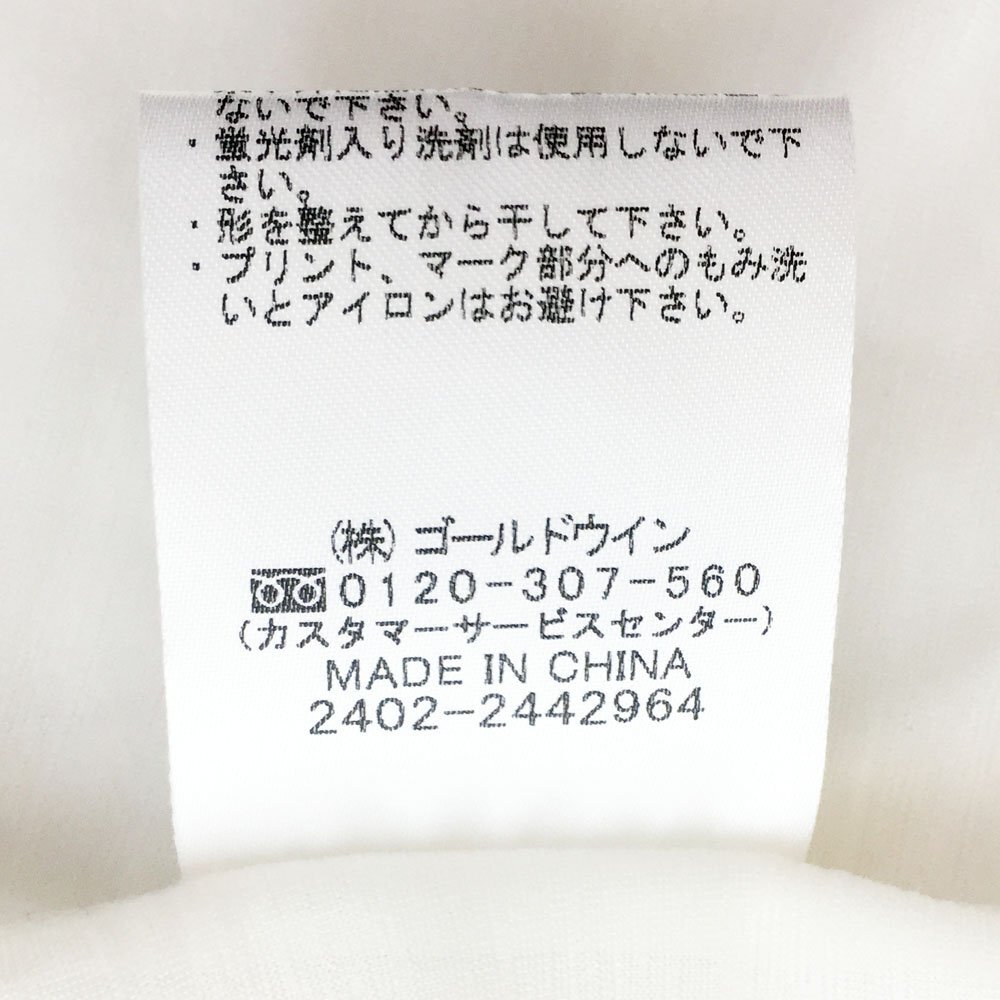 ないで下さい。
・蛍光剤入り洗剤は使用しないで下
さい。
・形を整えてから干して下さい。
・プリント、マーク部分へのもみ洗
いとアイロンはお避け下さい。
(株) ゴールドウイン
0120-307-560
(カスタマーサービスセンター)
MADE IN CHINA
2402-2442964